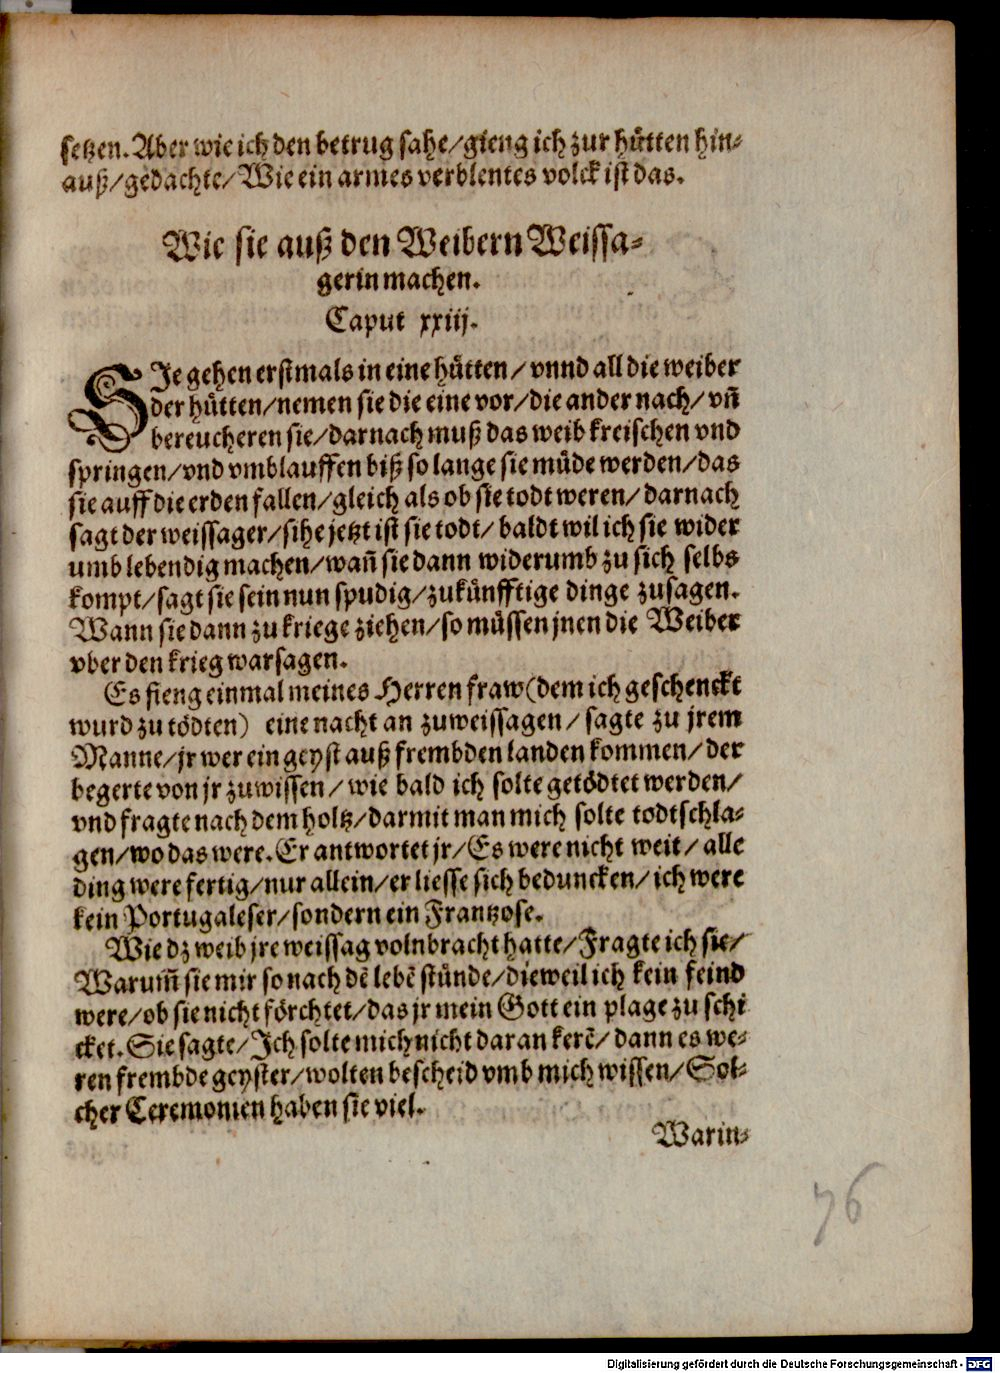 setzen. Aber wie ich den betrug sahe/gieng ich zur huͤtten hin⸗
auß/gedachte/Wie ein armes verblentes volck ist das.
Wie sie auß den Weibern Weissa⸗
gerin machen.
Caput xxiij.
SIe gehen erstmals in eine huͤtten/vnnd all die weiber
der huͤtten/nemen sie die eine vor/die ander nach/vñ
bereucheren sie/darnach muß das weib kreischen vnd
springen/vnd vmblauffen biß so lange sie muͤde werden/das
sie auff die erden fallen/gleich als ob sie todt weren/darnach
sagt der weissager/sihe jetzt ist sie todt/baldt wil ich sie wider
umb lebendig machen/wañ sie dann widerumb zu sich selbs
kompt/sagt sie sein nun spudig/zukuͤnfftige dinge zusagen.
Wann sie dann zu kriege ziehen/so muͤssen jnen die Weiber
vber den krieg warsagen.
Es fieng einmal meines Herren fraw (dem ich geschenckt
wurd zu toͤdten) eine nacht an zuweissagen/sagte zu jrem
Manne/jr wer ein geyst auß frembden landen kommen/der
begerte von jr zuwissen/wie bald ich solte getoͤdtet werden/
vnd fragte nach dem holtz/darmit man mich solte todtschla⸗
gen/wo das were. Er antwortet jr/Es were nicht weit/alle
ding were fertig/nur allein/er liesse sich beduncken/ich were
kein Portugaleser/sondern ein Frantzose.
Wie dz weib jre weissag volnbracht hatte/Fragte ich sie/
Warum̃ sie mir so nach dẽ lebẽ stuͤnde/dieweil ich kein feind
were/ob sie nicht foͤrchtet/das jr mein Gott ein plage zu schi
cket. Sie sagte/Ich solte mich nicht daran kerẽ/dann es we⸗
ren frembde geyster/wolten bescheid vmb mich wissen/Sol⸗
cher Ceremonien haben sie viel.
Warin⸗
76
Digitalisierung gefördert durch die Deutsche Forschungsgemeinschaft - DFG